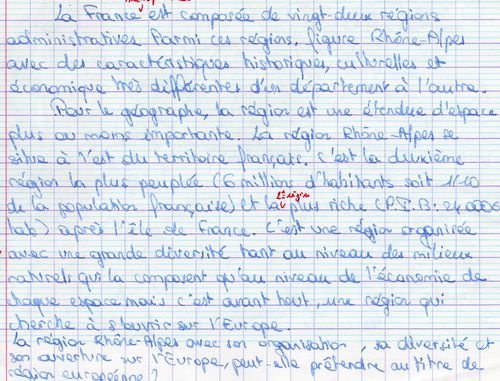 La France est composée de vingt-deux régions
administratives. Parmi ces régions, figure Rhône-Alpes
avec des caractéristiques historiques, culturelles et
économique très différentes d'un département à l'autre.
Pour le géographe, la région est une étendue d'espace
plus ou moins importante. La région Rhône-Alpes se
situe à l'est du territoire français. C'est la deuxième
région la plus peuplée (6 millions d'habitants soit 1/10
de la population française) et la 2e région plus riche (P.I.B: 24 000€
hab) après l'île de France. C'est une région organisée
avec une grande diversité tant au niveau des milieux
naturels qui la composent qu'au niveau de l'économie de
chaque espace mais c'est avant tout, une région qui
cherche à s'ouvrir sur l'Europe.
La région Rhône-Alpes avec son organisation, sa diversité et
son ouverture sur l'Europe, peut-elle prétendre au titre de
région européenne ?